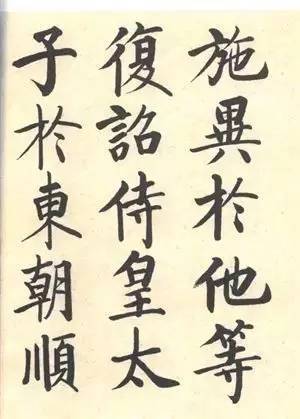 施異於他等
復詔侍皇太
子於東朝順